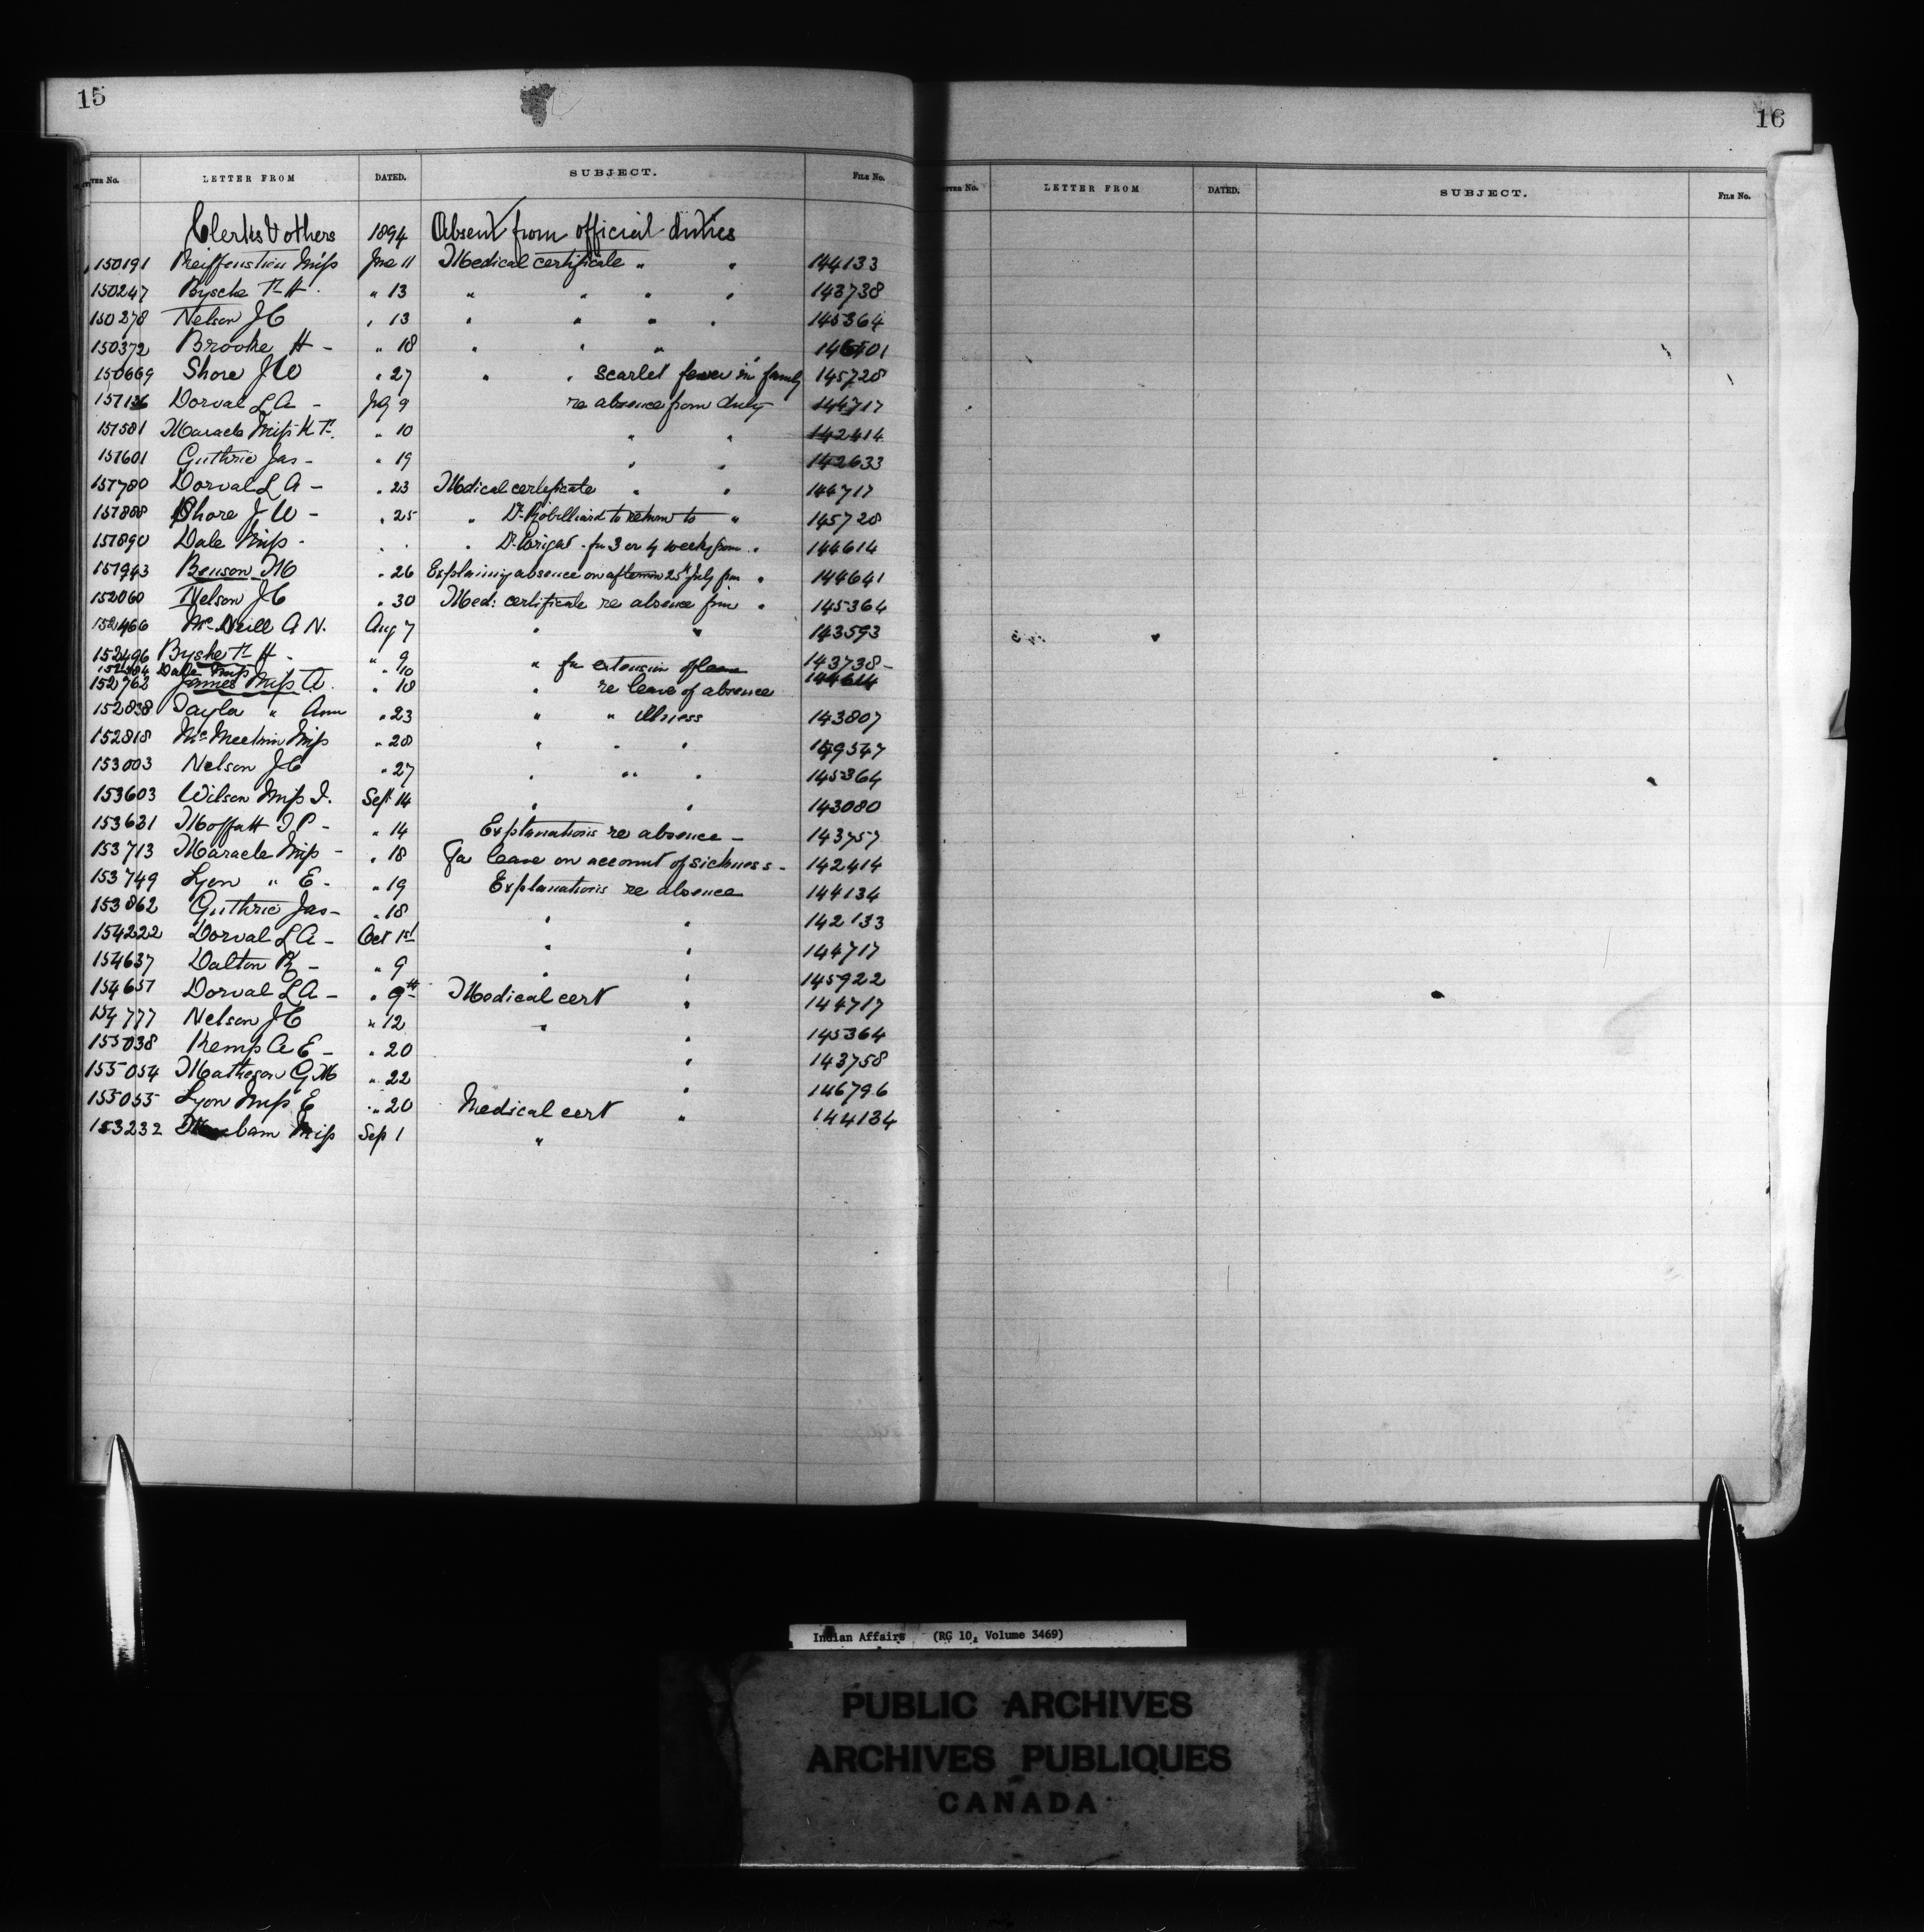 15
LETTER FROM DATED. SUBJECT. FILE No.
Clerks & others 1894 Absent from official duties
150191 Reiffenstien Miss Jne 11 Medical certificate " " 144133
150247 Byshe T. H. " 13 " " " " 143738
150278 Nelson J C " 13 " " " " 145364
150372 Brooke H - " 18 " " "
150669 Shore J W " 27 " " scarlet fever in family 145728
Dorval L A - Jly 9 re absence from duty 144717
151581 Maracle Miss K T. " 10 " " 142414
151601 Guthrie Jas - " 19 " " 142633
151780 Dorval L A - " 23 Medical certificate " " 144717
151888 Shore J W - " 25 " Dr. Robilliard to return to " 145728
151890 Dale Miss - " " " Dr. Wright - for 3 or 4 weeks from " 144614
151943 Benson M " 26 Explaining absence on afternoon 25th July from " 144641
152060 Nelson J C " 30 Med: certificate re absence from " 145364
152466 McNeill A N. Aug 7 " " 143593
152496 Byshe T. H - " 9 " for extension of leave 143738 -
Dale Miss " 10 144614
152762 James Miss A. " 18 " re leave of absence
152838 Taylor " Ann " 23 " " illness 143807
152818 McMeekin Miss " 28 " " "
153003 Nelson J C " 27 " " " 145364
153603 Wilson Miss I. Sept 14 " " 143080
153631 Moffatt T P - " 14 Explanations re absence - 143757
153713 Maracle Miss - " 18 For leave on account of sickness - 142414
153749 Lyon " E - " 19 Explanations re absence 144134
153862 Guthrie Jas - " 18 " " 142133
154222 Dorval L A - Oct 1st " " 144717
154637 Dalton R - " 9 " " 145922
154651 Dorval L A - " 9th Medical cert " 144717
154777 Nelson J C " 12 " 145364
155038 Kemp A E - " 20 " 143758
155054 Matheson G M " 22 " 146796
155055 Lyon Miss E " 20 Medical cert " 144134
153232 Miss Sep 1 "
16
LETTER FROM DATED. SUBJECT. FILE No.
Indian Affairs (RG 10, Volume 3469)
PUBLIC ARCHIVES
ARCHIVES PUBLIQUES
CANADA